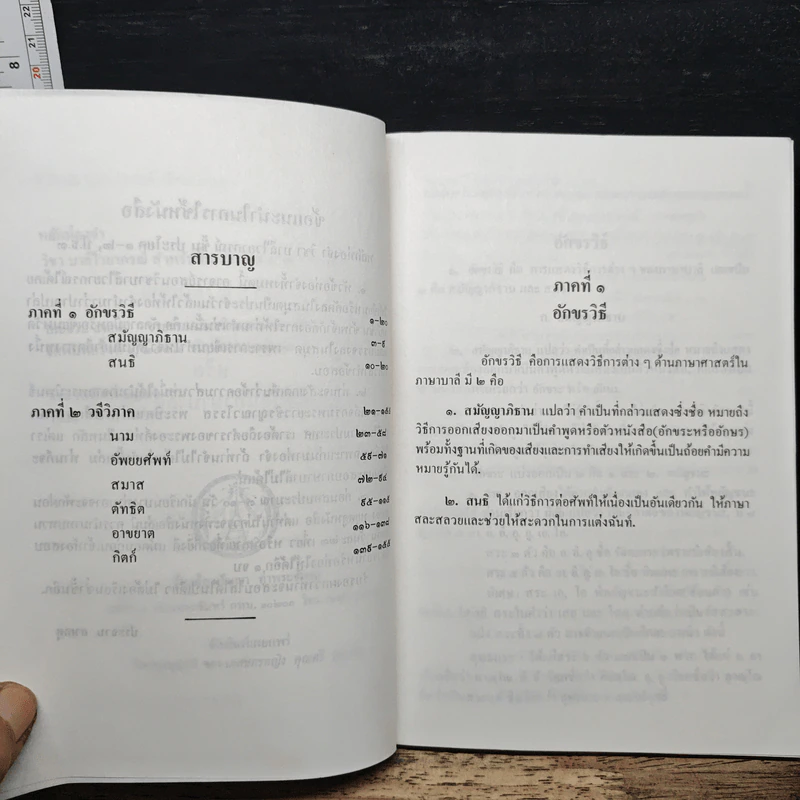 สารบาญ
ภาคที่ ๑ อักขรวิธี ๑-๒๐
สมัญญาภิธาน ๓-๙
สนธิ ๑๐-๒๐
ภาคที่ ๒ วจีวิภาค
นาม ๒๓-๕๘
อัพยยศัพท์ ๕๙-๗๑
สมาส ๗๒-๙๔
ตัทธิต
อาขยาต ๑๑๖-๑๓๘
กิตก์ ๑๓๙-๑๕๕
ภาคที่ ๑
อักขรวิธี
อักขรวิธี คือการแสดงวิธีการต่าง ๆ ด้านภาษาศาสตร์ใน
ภาษาบาลี มี ๒ คือ
๑. สมัญญาภิธาน แปลว่า คำเป็นที่กล่าวแสดงซึ่งชื่อ หมายถึง
วิธีการออกเสียงออกมาเป็นคำพูดหรือตัวหนังสือ(อักขระหรืออักษร)
พร้อมทั้งฐานที่เกิดของเสียงและการทำเสียงให้เกิดขึ้นเป็นถ้อยคำมีความ
หมายรู้กันได้.
๒. สนธิ ได้แก่วิธีการต่อศัพท์ให้เนื่องเป็นอันเดียวกัน ให้ภาษา
สละสลวยและช่วยให้สะดวกในการแต่งฉันท์.
8
20
22